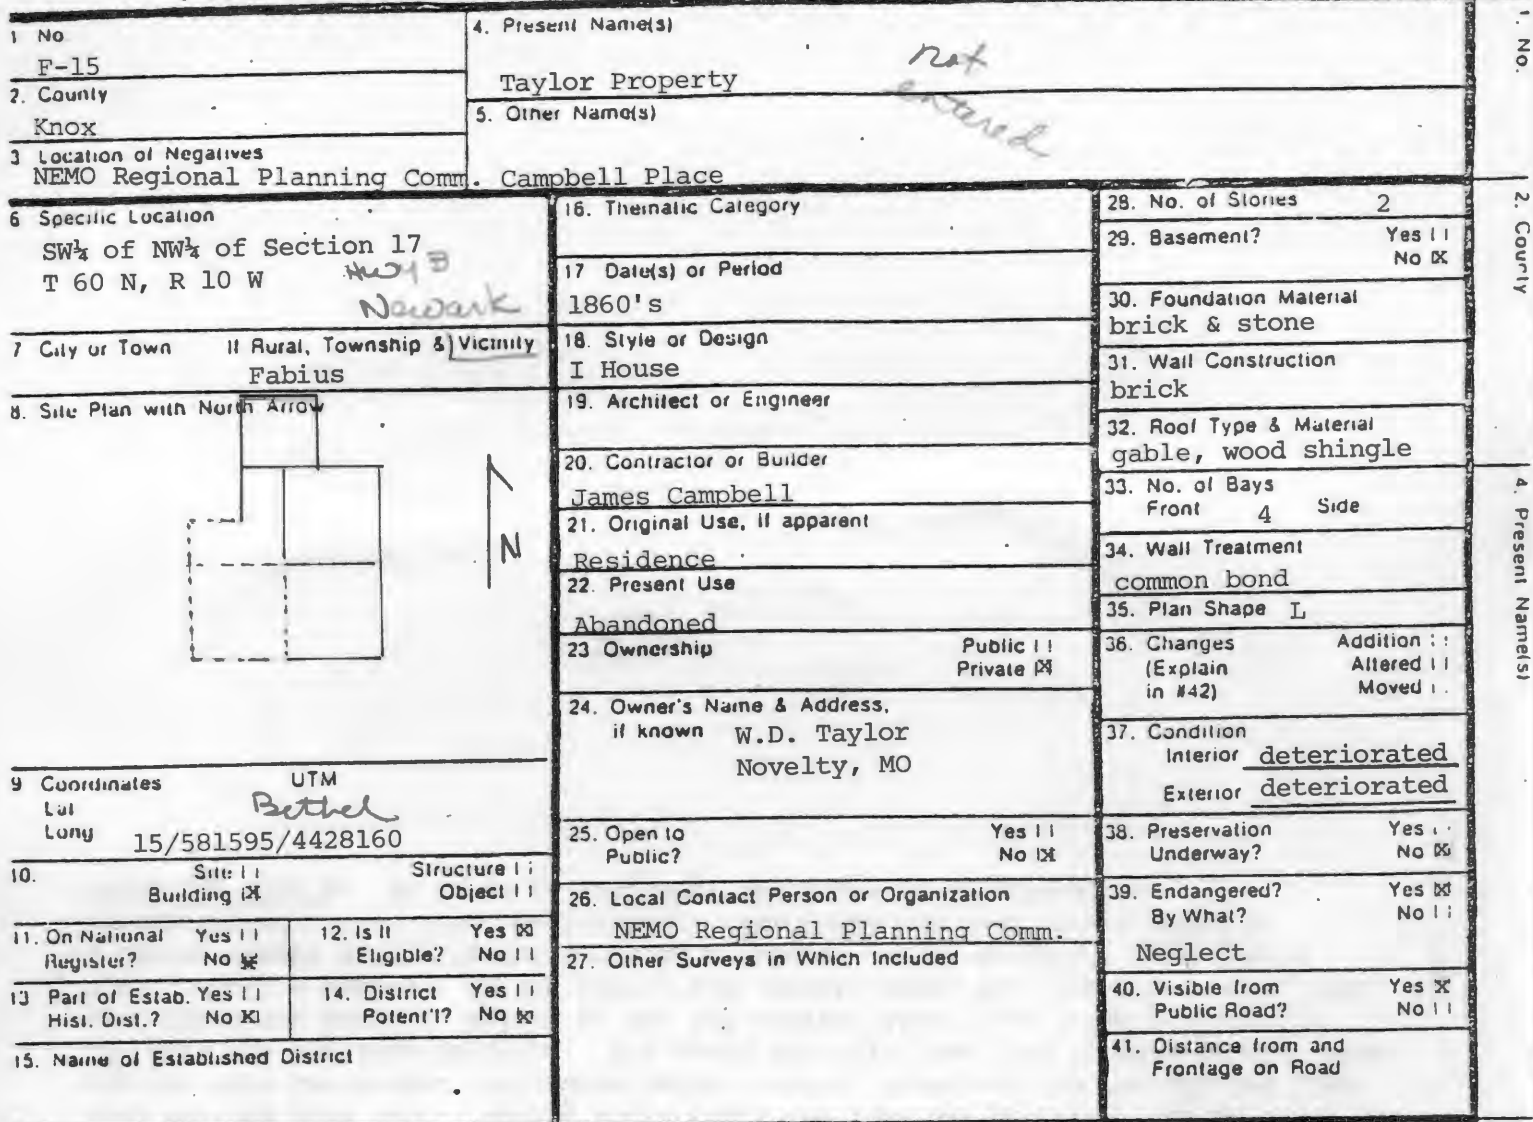 1 No
F-15
2. County
Knox
3 Location of Negatives
NEMO Regional Planning Comm.
4. Present Name(s)
Taylor Property
not
entered
5. Other Name(s)
Campbell Place
6 Specific Location
SW¼ of NW¼ of Section 17
T 60 N, R 10 W
Hwy B
Newark
7 City or Town If Rural, Township & Vicinity
Fabius
8. Site Plan with North Arrow
N
9 Coordinates UTM
Lat
Bethel
Long
15/581595/4428160
10. Site Structure
Building X Object
11. On National Yes
Register? No X
12. Is It Yes X
Eligible? No
13 Part of Estab. Yes
Hist. Dist.? No X
14. District Yes
Potent'l? No X
15. Name of Established District
16. Thematic Category
17 Date(s) or Period
1860's
18. Style or Design
I House
19. Architect or Engineer
20. Contractor or Builder
James Campbell
21. Original Use, if apparent
Residence
22. Present Use
Abandoned
23 Ownership Public
Private X
24. Owner's Name & Address,
if known W.D. Taylor
Novelty, MO
25. Open to Yes
Public? No X
26. Local Contact Person or Organization
NEMO Regional Planning Comm.
27. Other Surveys in Which Included
28. No. of Stories 2
29. Basement? Yes
No X
30. Foundation Material
brick & stone
31. Wall Construction
brick
32. Roof Type & Material
gable, wood shingle
33. No. of Bays
Front 4 Side
34. Wall Treatment
common bond
35. Plan Shape L
36. Changes Addition
(Explain Altered
in #42) Moved
37. Condition
Interior deteriorated
Exterior deteriorated
38. Preservation Yes
Underway? No X
39. Endangered? Yes X
By What? No
Neglect
40. Visible from Yes X
Public Road? No
41. Distance from and
Frontage on Road
1. No.
2. County
4. Present Name(s)